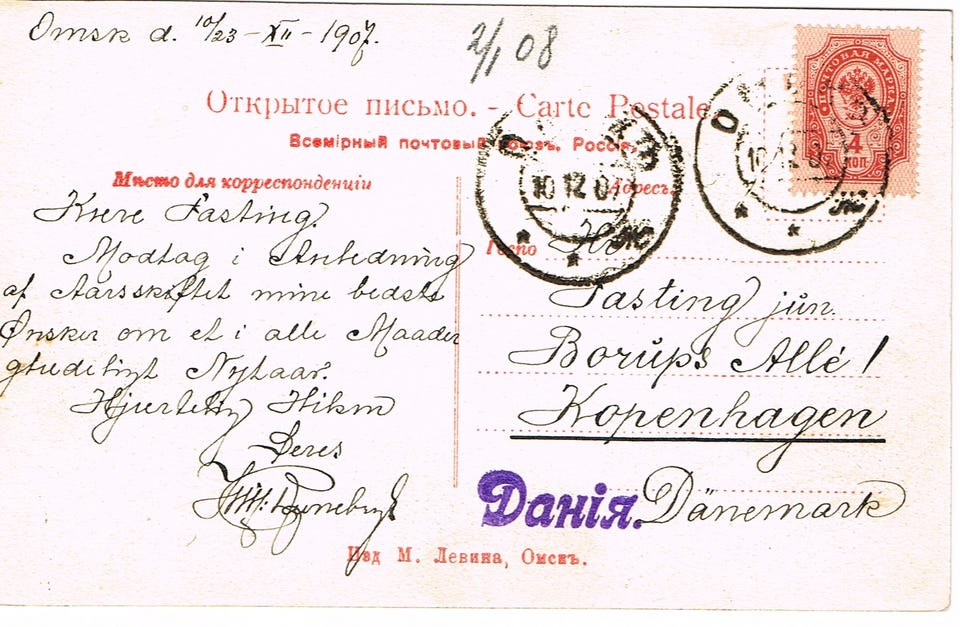 Omsk d. 10/23-XII-1907.
2/1 08
Открытое письмо. - Carte Postale
Всемірный почтовый союзъ, Россія.
ПОЧТОВАЯ МАРКА
4
КОП.
10 12 07
10 12 0
Ж
Ж
Мѣсто для корреспонденціи
Адресъ.
Kjere Fasting!
Modtag i Anledning
af Aarsskiftet mine bedste
Ønsker om et i alle Maader
glædeligt Nytaar.
Hjertelig Hilsen
Deres
Госпо Hr
Fasting jun.
Borups Allé !
Kopenhagen
Данія. Dänemark
Изд М. Левина, Омскъ.